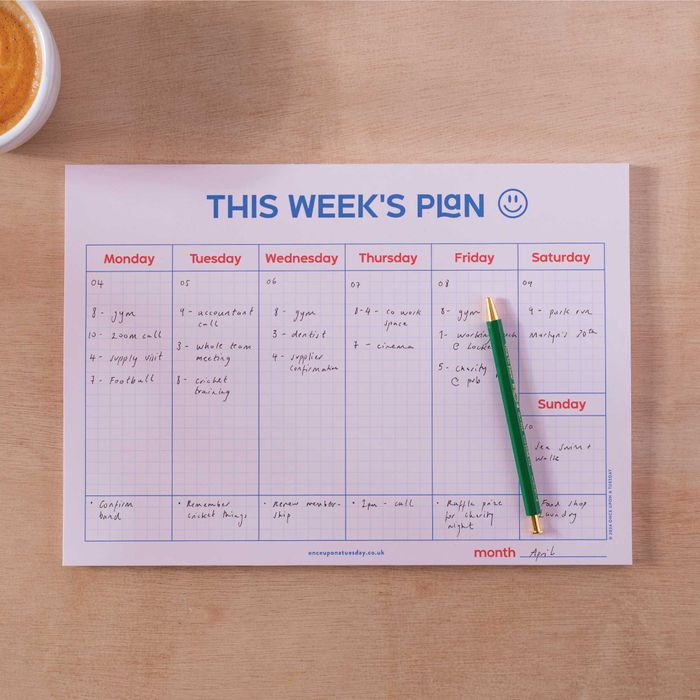 THIS WEEK'S PLAN
Monday
Tuesday
Wednesday
Thursday
Friday
Saturday
04
8 - gym
10 - zoom call
4 - supply visit
7 - Football
05
9 - accountant
call
3 - whole team
meeting
8 - cricket
training
06
8 - gym
3 - dentist
4 - supplier
confirmation
07
8-4 - co work
space
7 - cinema
08
8 - gym
1 - working
@
5 - charity
@ pub
09
9 - park run
Martyn's 30th
Sunday
10
Sea swim +
walk
• Confirm
band
• Remember
cricket things
• Renew member-
ship
• 2pm - call
• Raffle prize
for charity
night
Food shop
laundry
onceuponatuesday.co.uk
month April
© 2024 ONCE UPON A TUESDAY